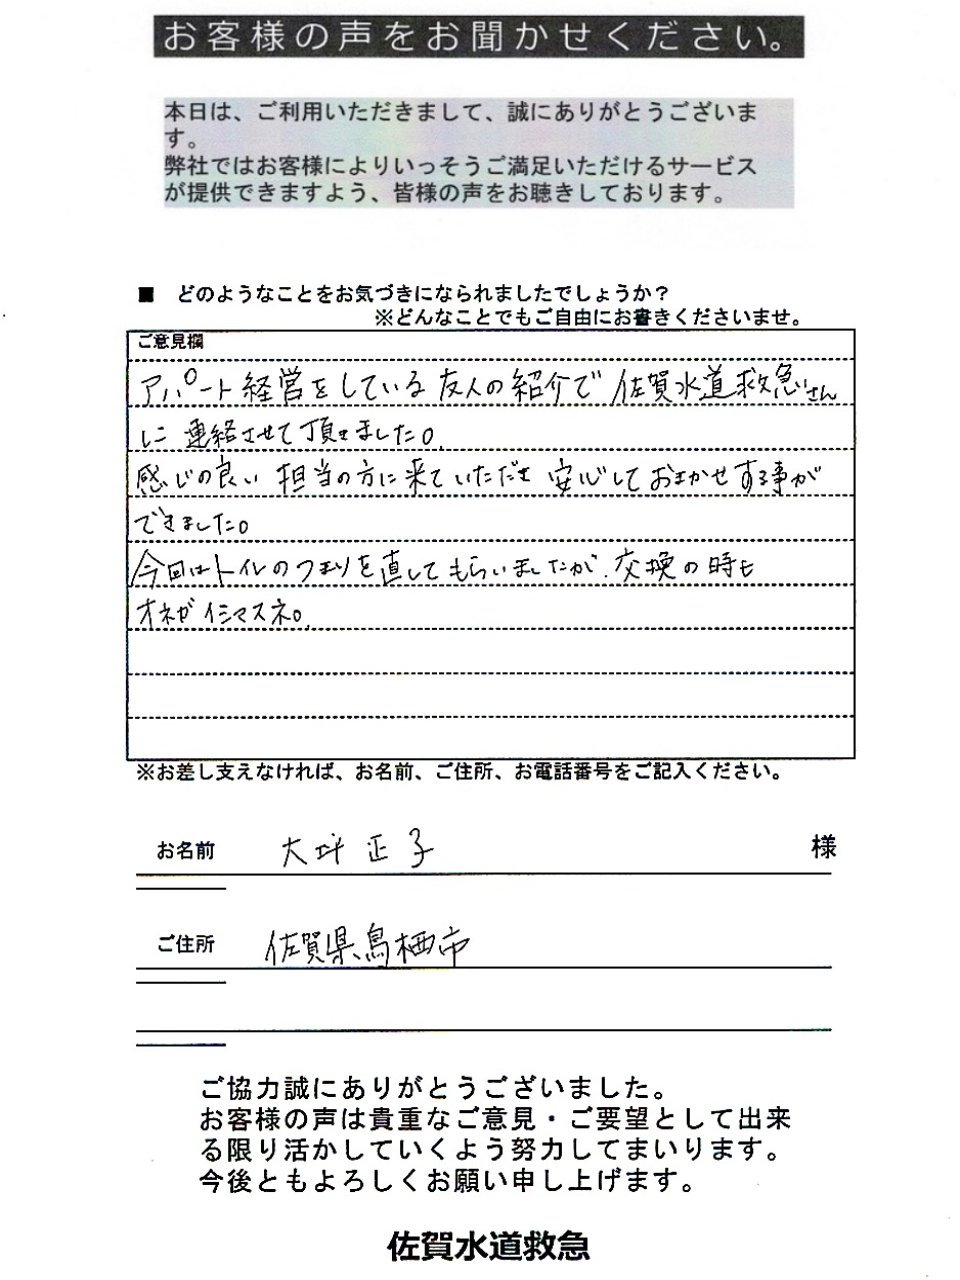 お客様の声をお聞かせください。
本日は、ご利用いただきまして、誠にありがとうございま
す。
弊社ではお客様によりいっそうご満足いただけるサービス
が提供できますよう、皆様の声をお聴きしております。
■ どのようなことをお気づきになられましたでしょうか？
※どんなことでもご自由にお書きくださいませ。
ご意見欄
アパート経営をしている友人の紹介で佐賀水道救急さん
に連絡させて頂きました。
感じの良い担当の方に来ていただき安心しておまかせする事が
できました。
今回はトイレのつまりを直してもらいましたが、交換の時も
オネガイシマスネ。
※お差し支えなければ、お名前、ご住所、お電話番号をご記入ください。
お名前 大坪正子 様
ご住所 佐賀県鳥栖市
ご協力誠にありがとうございました。
お客様の声は貴重なご意見・ご要望として出来
る限り活かしていくよう努力してまいります。
今後ともよろしくお願い申し上げます。
佐賀水道救急